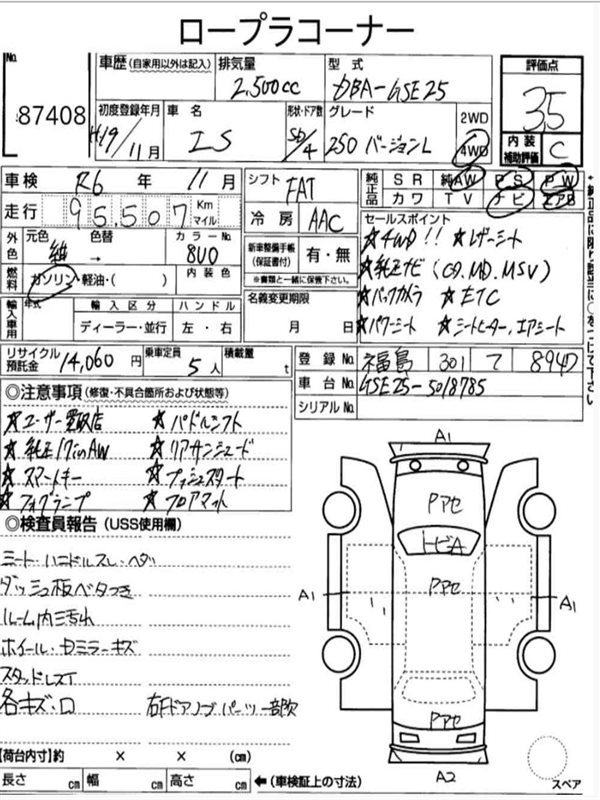 ロープラコーナー
No. 87408
車歴 (自家用以外は記入)
排気量 2,500cc
型式 DBA-GSE25
評価点 3.5
初度登録年月 H19/11月
車名 IS
形状・ドア数 SD/4
グレード 250 バージョンL
2WD
4WD
内装補助評価 C
車検 R6年 11月
走行 95,507 Km マイル
シフト FAT
冷房 AAC
純正品 SR 純AW PS PW
カワ TV ナビ エアB
外色 元色 紺 色替 →
カラーNo. 8U0
燃料 ガソリン・軽油・( )
内装色
新車整備手帳(保証書付) 有・無
※書類と一緒に保管下さい。
名義変更期限 月 日
輸入車用 年式
輸入区分 ディーラー・並行
ハンドル 左・右
セールスポイント
☆4WD!! ☆レザーシート
☆純正ナビ(CD.MD.MSV)
☆バックカメラ ☆ETC
☆パワーシート ☆シートヒーター,エアシート
リサイクル預託金 14,060円
乗車定員 5人
積載量 t
登録No. 福島 301 て 8940
車台No. GSE25-5018785
シリアルNo.
◎注意事項 (修復・不具合箇所および状態等)
☆ユーザー買取店 ☆パドルシフト
☆純正17inAW ☆リアサンシェード
☆スマートキー ☆プッシュスタート
☆フォグランプ ☆フロアマット
◎検査員報告 (USS使用欄)
シート・ハンドルスレ・ヘタリ
ダッシュ板ベタつき
ルーム内ヨゴレ
ホイール・ドミラーキズ
スタッドレスT
各キズ・凹 右Fドアノブ パーツ一部欠
A1
Pアセ
トビA
Pアセ
A1
A1
Pアセ
A2
スペア
【荷台内寸】約 × × (cm)
長さ cm 幅 cm 高さ cm ←(車検証上の寸法)